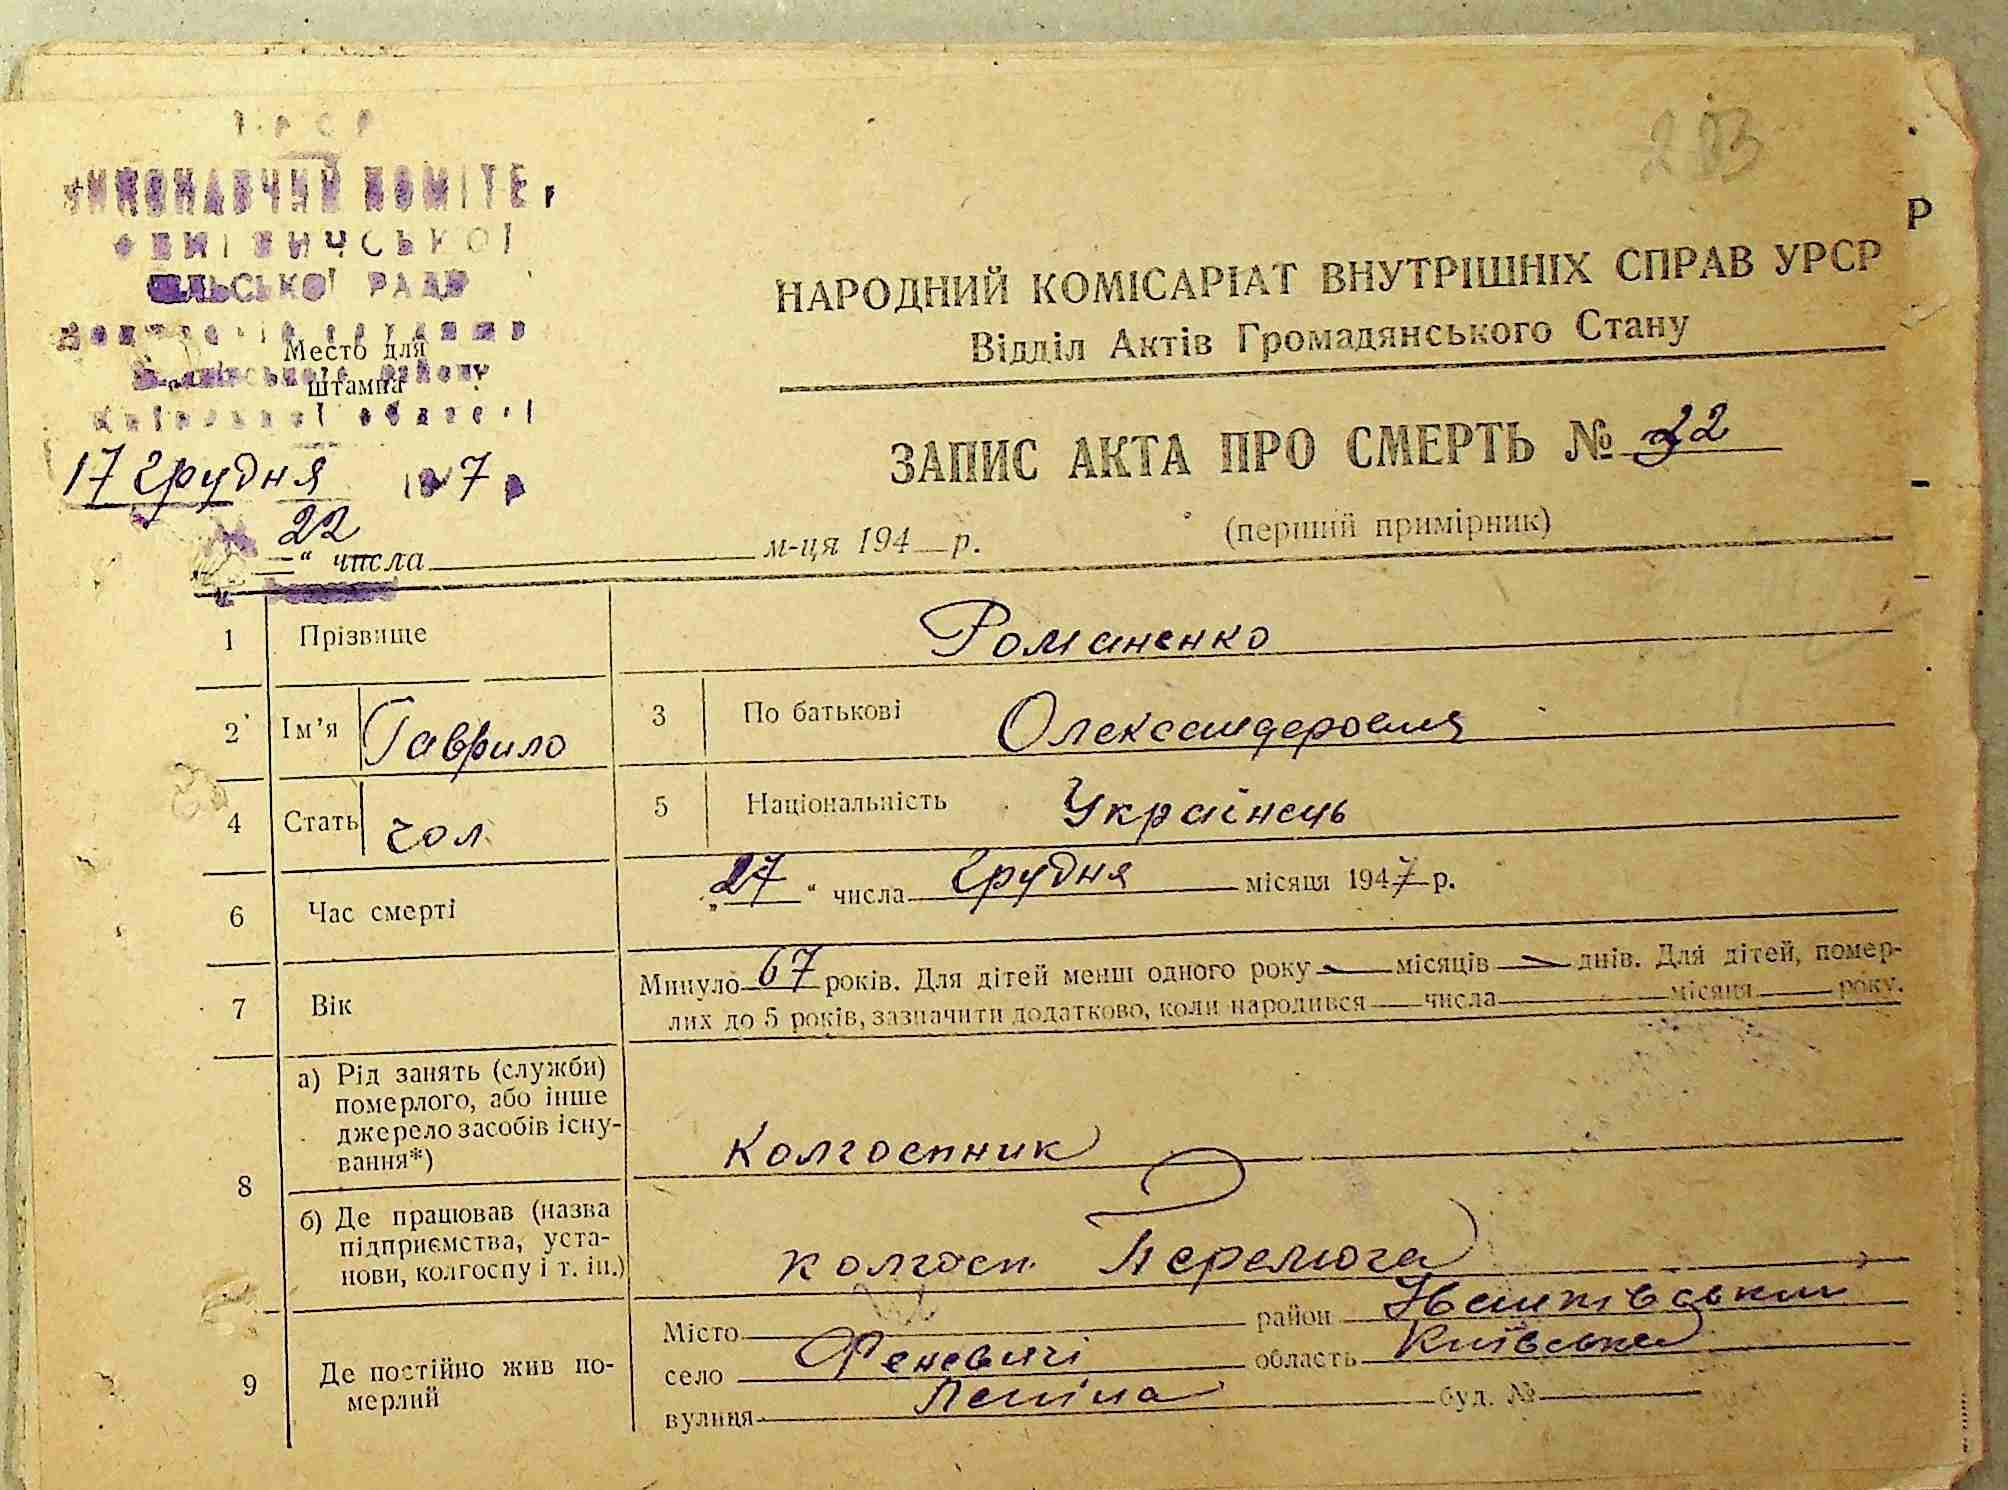 УРСР
ВИКОНАВЧИЙ КОМІТЕТ
ФЕНЕВИЧСЬКОЇ
СІЛЬСЬКОЇ РАДИ
Депутатів трудящих
Іванківського району
Київської області
Место для
штампа
17 Грудня 1947 р
22
“ числа м-ця 194 р.
НАРОДНИЙ КОМІСАРІАТ ВНУТРІШНІХ СПРАВ УРСР
Відділ Актів Громадянського Стану
ЗАПИС АКТА ПРО СМЕРТЬ № 22
(перший примірник)
Р
1 Прізвище Романенко
2 Ім’я Гаврило 3 По батькові
4 Стать чол. 5 Національність Українець
6 Час смерті „27“ числа Грудня місяця 1947 р.
7 Вік Минуло 67 років. Для дітей менш одного року місяців днів. Для дітей, помер-
лих до 5 років, зазначити додатково, коли народився числа місяця року.
8 а) Рід занять (служби)
померлого, або інше
джерело засобів існу-
вання*) Колгоспник
б) Де працював (назва
підприємства, уста-
нови, колгоспу і т. ін.) колгосп. Перемога
9 Де постійно жив по-
мерлий
Місто район Іванківський
село Феневичі область Київська
вулиця Леніна буд. №